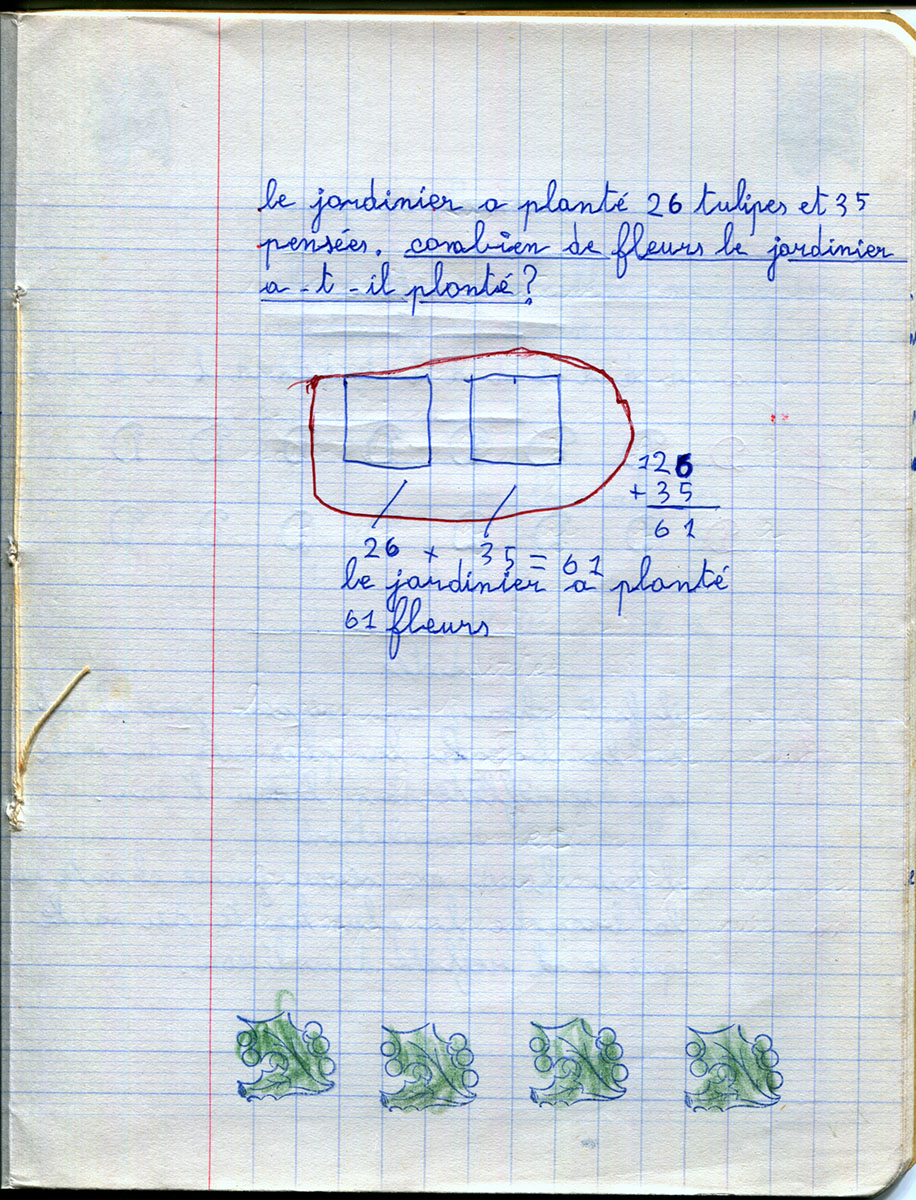 le jardinier a planté 26 tulipes et 35
pensées. combien de fleurs le jardinier
a-t-il planté?
126
+35
61
26 + 35 = 61
le jardinier a planté
61 fleurs